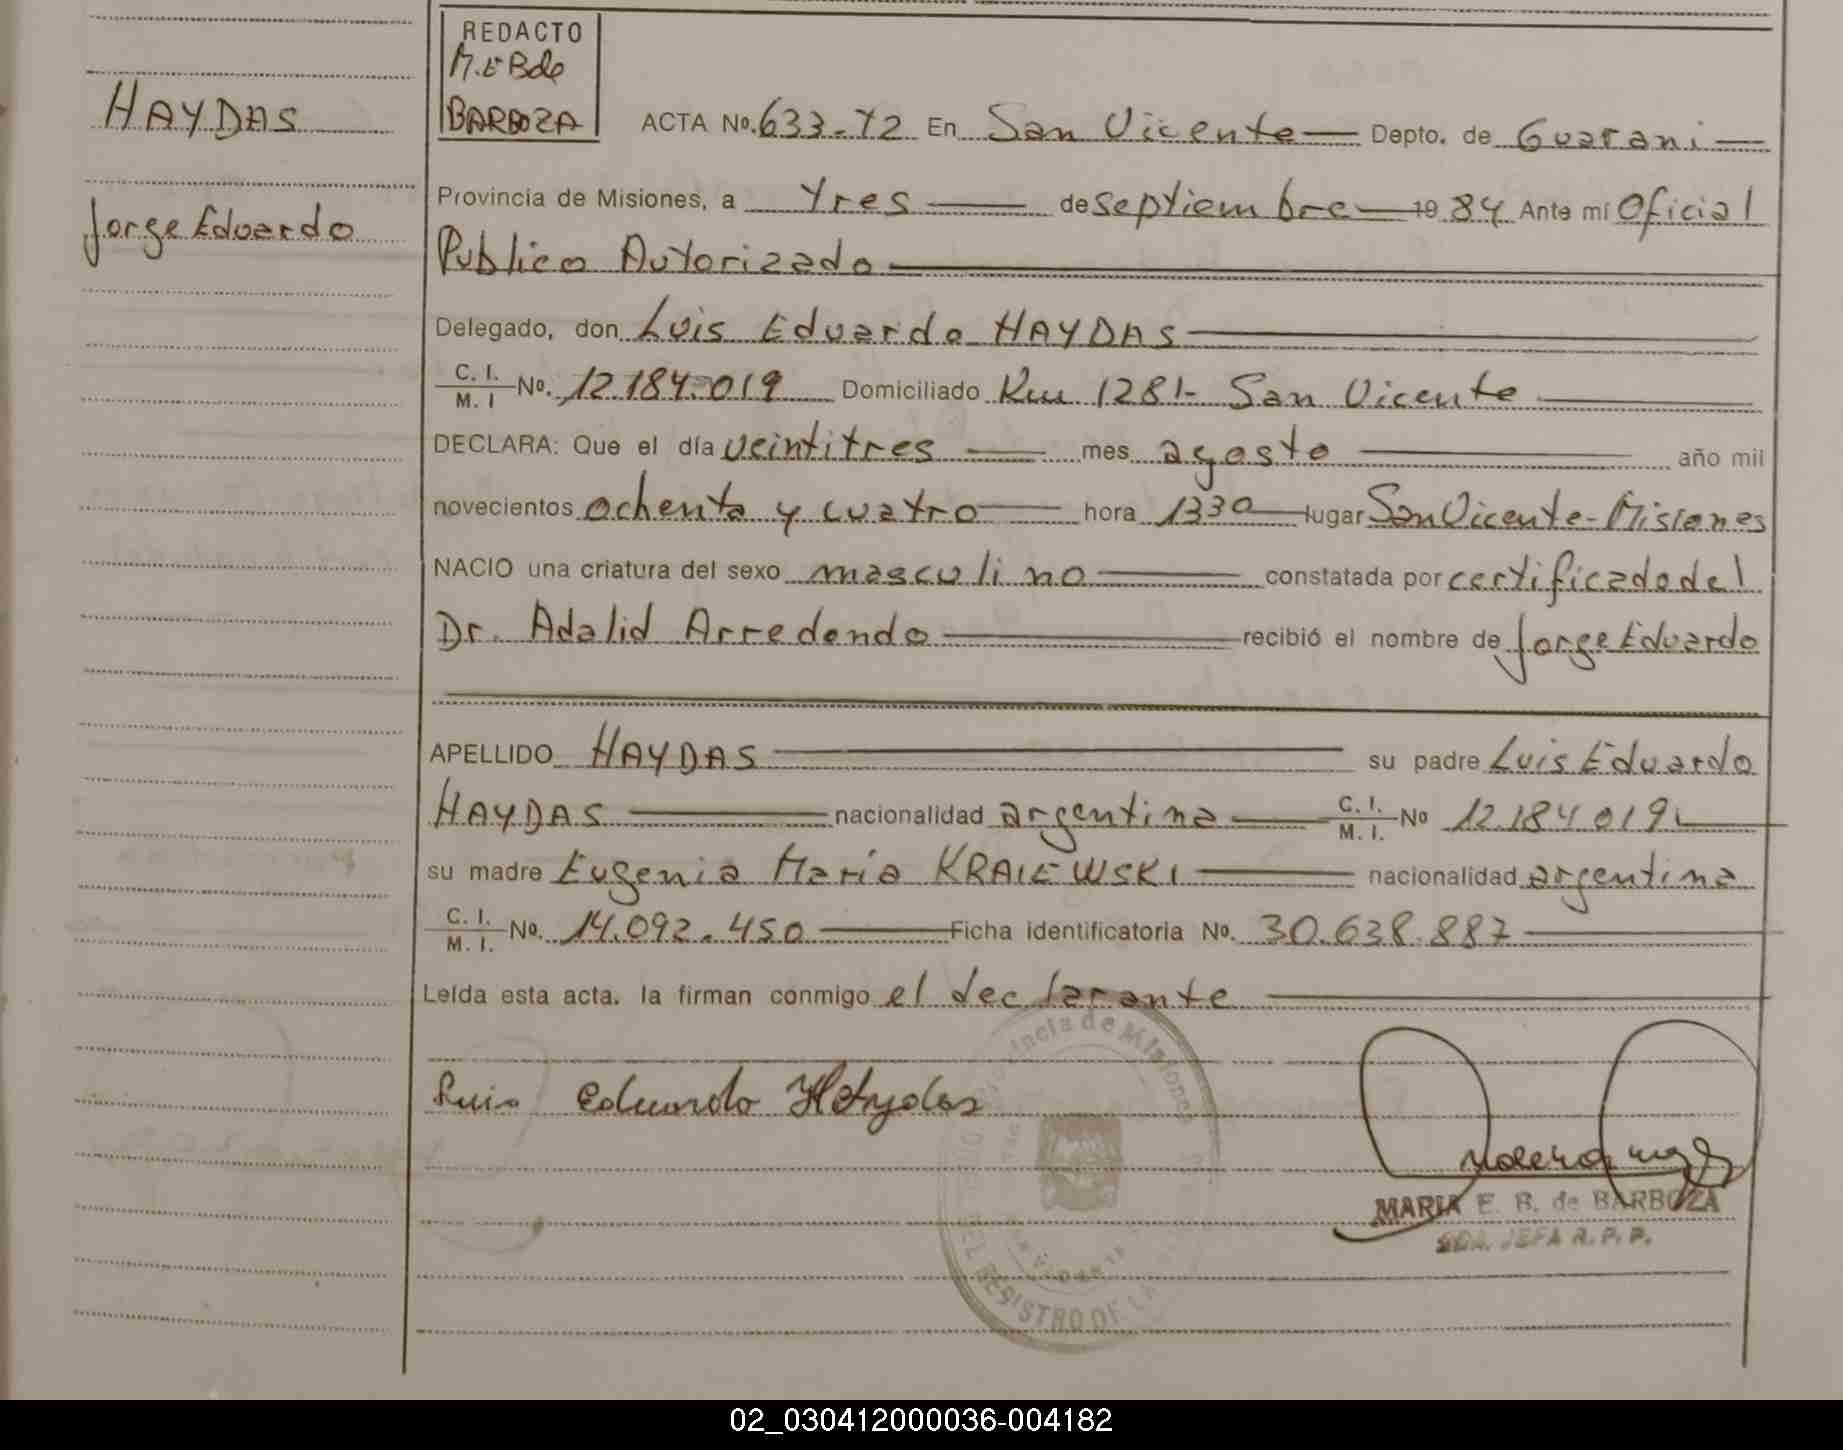 REDACTO
M.E Bde
BARBOZA
HAYDAS
Jorge Eduardo
ACTA No. 633-T2 En San Vicente Depto. de Guarani
Provincia de Misiones, a Tres de septiembre 19 84 Ante mi Oficial
Publico Autorizado
Delegado, don Luis Eduardo HAYDAS
C. I. / M. I No. 12.184.019 Domiciliado Km 1281- San Vicente
DECLARA: Que el día veintitres mes agosto año mil
novecientos ochenta y cuatro hora 1330 lugar San Vicente-Misiones
NACIO una criatura del sexo masculino constatada por certificado del
Dr. Adalid Arredondo recibió el nombre de Jorge Eduardo
APELLIDO HAYDAS su padre Luis Eduardo
HAYDAS nacionalidad argentina C. I. / M. I. No 12.184.019
su madre Eugenia Maria KRAIEWSKI nacionalidad argentina
C. I. / M. I. No. 14.092.450 Ficha identificatoria No. 30.638.887
Leída esta acta, la firman conmigo el declarante
Luis Eduardo Haydas
Provincia de Misiones
DEL REGISTRO DE
MARIA E. B. de BARBOZA
JEFA R.P.P.
02_030412000036-004182